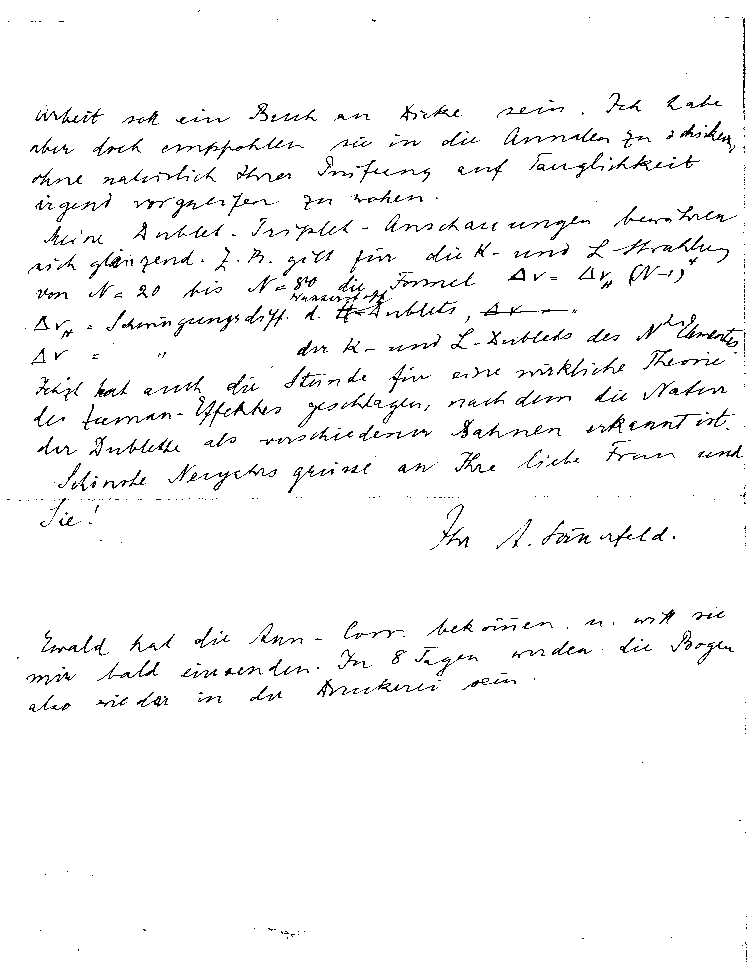 Arbeit soll ein Buch an Dicke sein. Ich habe
aber doch empfohlen sie in die Annalen zu schicken,
ohne natürlich Ihrer Prüfung auf Tauglichkeit
irgend vorgreifen zu wollen.
Meine Dublet-Triplet-Anschauungen bewähren
sich glänzend. Z. B. gilt für die K- und L-Strahlung
von N = 20 bis N = 80 die Formel Δν = Δν_H (N-1)^4
Δν_H = Schwingungsdiff. d. Wasserstoff Dublets,
Δν = " der K- und L-Dublets des N^ten Elementes
Jetzt hat auch die Stunde für eine wirkliche Theorie
des Zeeman-Effektes geschlagen, nachdem die Natur
der Dublette als verschiedener Bahnen erkannt ist.
Schönste Neujahrsgrüsse an Ihre liebe Frau und
Sie!
Ihr A. Som̄erfeld.
Ewald hat die Ann-Corr. bekom̄en u. will sie
mir bald einsenden. In 8 Tagen werden die Bogen
also wieder in der Druckerei sein.